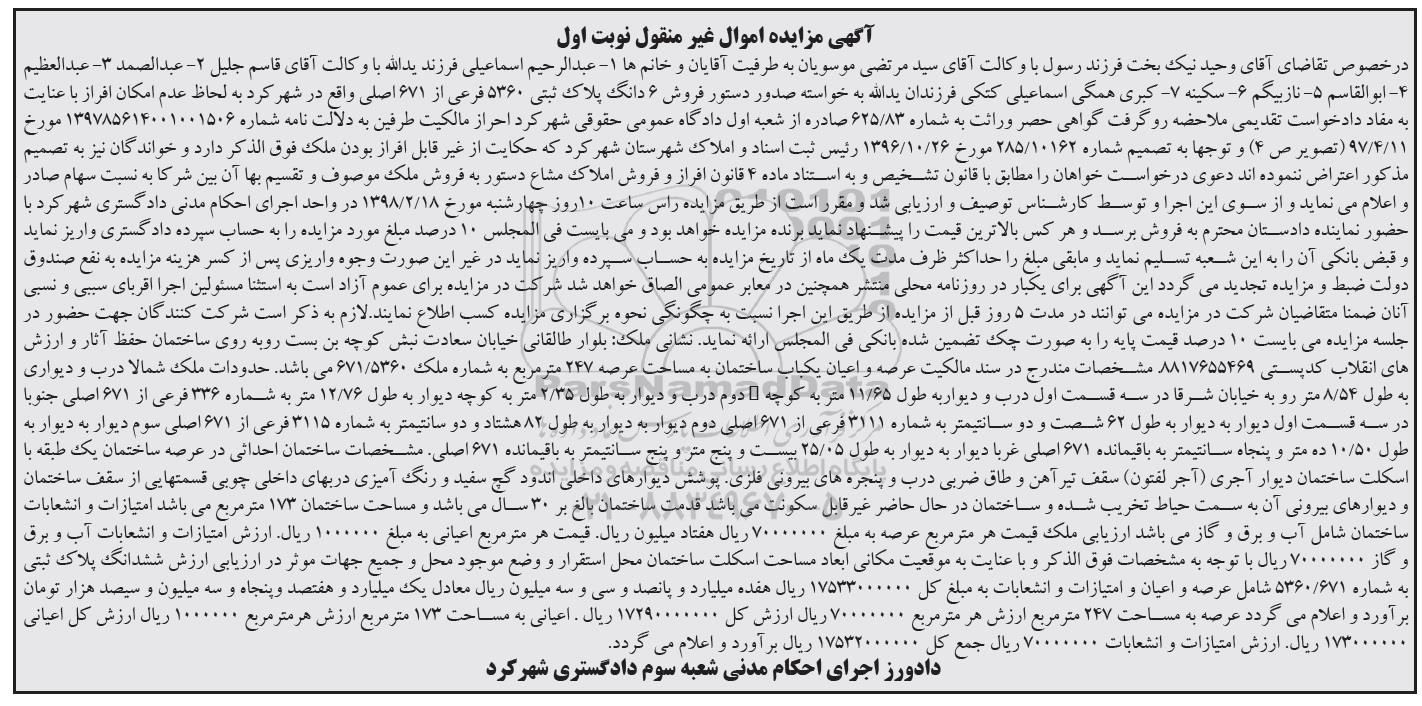 آگهی مزایده اموال غیر منقول نوبت اول
درخصوص تقاضای آقای وحید نیک بخت فرزند رسول با وکالت آقای سید مرتضی موسویان به طرفیت آقایان و خانم ها ۱- عبدالرحیم اسماعیلی فرزند یدالله با وکالت آقای قاسم جلیل ۲- عبدالصمد ۳- عبدالعظیم
۴- ابوالقاسم ۵- نازبیگم ۶- سکینه ۷- کبری همگی اسماعیلی کتکی فرزندان یدالله به خواسته صدور دستور فروش ۶ دانگ پلاک ثبتی ۵۳۶۰ فرعی از ۶۷۱ اصلی واقع در شهرکرد به لحاظ عدم امکان افراز با عنایت
به مفاد دادخواست تقدیمی ملاحضه روگرفت گواهی حصر وراثت به شماره ۶۲۵/۸۳ صادره از شعبه اول دادگاه عمومی حقوقی شهرکرد احراز مالکیت طرفین به دلالت نامه شماره ۱۳۹۷۸۵۶۱۴۰۰۱۰۰۱۵۰۶ مورخ
۹۷/۴/۱۱ (تصویر ص ۴) و توجها به تصمیم شماره ۲۸۵/۱۰۱۶۲ مورخ ۱۳۹۶/۱۰/۲۶ رئیس ثبت اسناد و املاک شهرستان شهرکرد که حکایت از غیر قابل افراز بودن ملک فوق الذکر دارد و خواندگان نیز به تصمیم
مذکور اعتراض ننموده اند دعوی درخواست خواهان را مطابق با قانون تشخیص و به استناد ماده ۴ قانون افراز و فروش املاک مشاع دستور به فروش ملک موصوف و تقسیم بها آن بین شرکا به نسبت سهام صادر
و اعلام می نماید و از سوی این اجرا و توسط کارشناس توصیف و ارزیابی شد و مقرر است از طریق مزایده راس ساعت ۱۰روز چهارشنبه مورخ ۱۳۹۸/۲/۱۸ در واحد اجرای احکام مدنی دادگستری شهرکرد با
حضور نماینده دادستان محترم به فروش برسد و هر کس بالاترین قیمت را پیشنهاد نماید برنده مزایده خواهد بود و می بایست فی المجلس ۱۰ درصد مبلغ مورد مزایده را به حساب سپرده دادگستری واریز نماید
و قبض بانکی آن را به این شعبه تسلیم نماید و مابقی مبلغ را حداکثر ظرف مدت یک ماه از تاریخ مزایده به حساب سپرده واریز نماید در غیر این صورت وجوه واریزی پس از کسر هزینه مزایده به نفع صندوق
دولت ضبط و مزایده تجدید می گردد این آگهی برای یکبار در روزنامه محلی منتشر همچنین در معابر عمومی الصاق خواهد شد شرکت در مزایده برای عموم آزاد است به استثنا مسئولین اجرا اقربای سببی و نسبی
آنان ضمنا متقاضیان شرکت در مزایده می توانند در مدت ۵ روز قبل از مزایده از طریق این اجرا نسبت به چگونگی نحوه برگزاری مزایده کسب اطلاع نمایند.لازم به ذکر است شرکت کنندگان جهت حضور در
جلسه مزایده می بایست ۱۰ درصد قیمت پایه را به صورت چک تضمین شده بانکی فی المجلس ارائه نماید. نشانی ملک: بلوار طالقانی خیابان سعادت نبش کوچه بن بست روبه روی ساختمان حفظ آثار و ارزش
های انقلاب کدپستی ۸۸۱۷۶۵۵۴۶۹. مشخصات مندرج در سند مالکیت عرصه و اعیان یکباب ساختمان به مساحت عرصه ۲۴۷ مترمربع به شماره ملک ۶۷۱/۵۳۶۰ می باشد. حدودات ملک شمالا درب و دیواری
به طول ۸/۵۴ متر رو به خیابان شرقا در سه قسمت اول درب و دیواربه طول ۱۱/۶۵ متر به کوچه دوم درب و دیوار به طول ۲/۳۵ متر به کوچه دیوار به طول ۱۲/۷۶ متر به شماره ۳۳۶ فرعی از ۶۷۱ اصلی جنوبا
در سه قسمت اول دیوار به دیوار به طول ۶۲ شصت و دو سانتیمتر به شماره ۳۱۱۱ فرعی از ۶۷۱ اصلی دوم دیوار به دیوار به طول ۸۲ هشتاد و دو سانتیمتر به شماره ۳۱۱۵ فرعی از ۶۷۱ اصلی سوم دیوار به دیوار به
طول ۱۰/۵۰ ده متر و پنجاه سانتیمتر به باقیمانده ۶۷۱ اصلی غربا دیوار به دیوار به طول ۲۵/۰۵ بیست و پنج متر و پنج سانتیمتر به باقیمانده ۶۷۱ اصلی. مشخصات ساختمان احداثی در عرصه ساختمان یک طبقه با
اسکلت ساختمان دیوار آجری (آجر لفتون) سقف تیرآهن و طاق ضربی درب و پنجره های بیرونی فلزی. پوشش دیوارهای داخلی اندود گچ سفید و رنگ آمیزی دربهای داخلی چوبی قسمتهایی از سقف ساختمان
و دیوارهای بیرونی آن به سمت حیاط تخریب شده و ساختمان در حال حاضر غیرقابل سکونت می باشد قدمت ساختمان بالغ بر ۳۰ سال می باشد و مساحت ساختمان ۱۷۳ مترمربع می باشد امتیازات و انشعابات
ساختمان شامل آب و برق و گاز می باشد ارزیابی ملک قیمت هر مترمربع عرصه به مبلغ ۷۰۰۰۰۰۰۰ ریال هفتاد میلیون ریال. قیمت هر مترمربع اعیانی به مبلغ ۱۰۰۰۰۰۰ ریال. ارزش امتیازات و انشعابات آب و برق
و گاز ۷۰۰۰۰۰۰۰ ریال با توجه به مشخصات فوق الذکر و با عنایت به موقعیت مکانی ابعاد مساحت اسکلت ساختمان محل استقرار و وضع موجود محل و جمیع جهات موثر در ارزیابی ارزش ششدانگ پلاک ثبتی
به شماره ۵۳۶۰/۶۷۱ شامل عرصه و اعیان و امتیازات و انشعابات به مبلغ کل ۱۷۵۳۳۰۰۰۰۰۰ ریال هفده میلیارد و پانصد و سی و سه میلیون ریال معادل یک میلیارد و هفتصد وپنجاه و سه میلیون و سیصد هزار تومان
برآورد و اعلام می گردد عرصه به مساحت ۲۴۷ مترمربع ارزش هر مترمربع ۷۰۰۰۰۰۰۰ ریال ارزش کل ۱۷۲۹۰۰۰۰۰۰۰ ریال . اعیانی به مساحت ۱۷۳ مترمربع ارزش هرمترمربع ۱۰۰۰۰۰۰ ریال ارزش کل اعیانی
۱۷۳۰۰۰۰۰۰ ریال. ارزش امتیازات و انشعابات ۷۰۰۰۰۰۰۰ ریال جمع کل ۱۷۵۳۲۰۰۰۰۰۰ ریال برآورد و اعلام می گردد.
دادورز اجرای احکام مدنی شعبه سوم دادگستری شهرکرد
ParsNamadData
پایگاه اطلاع رسانی مناقصه و مزایده
۰۲۱-۸۸۳۴۹۶۷۰-۵